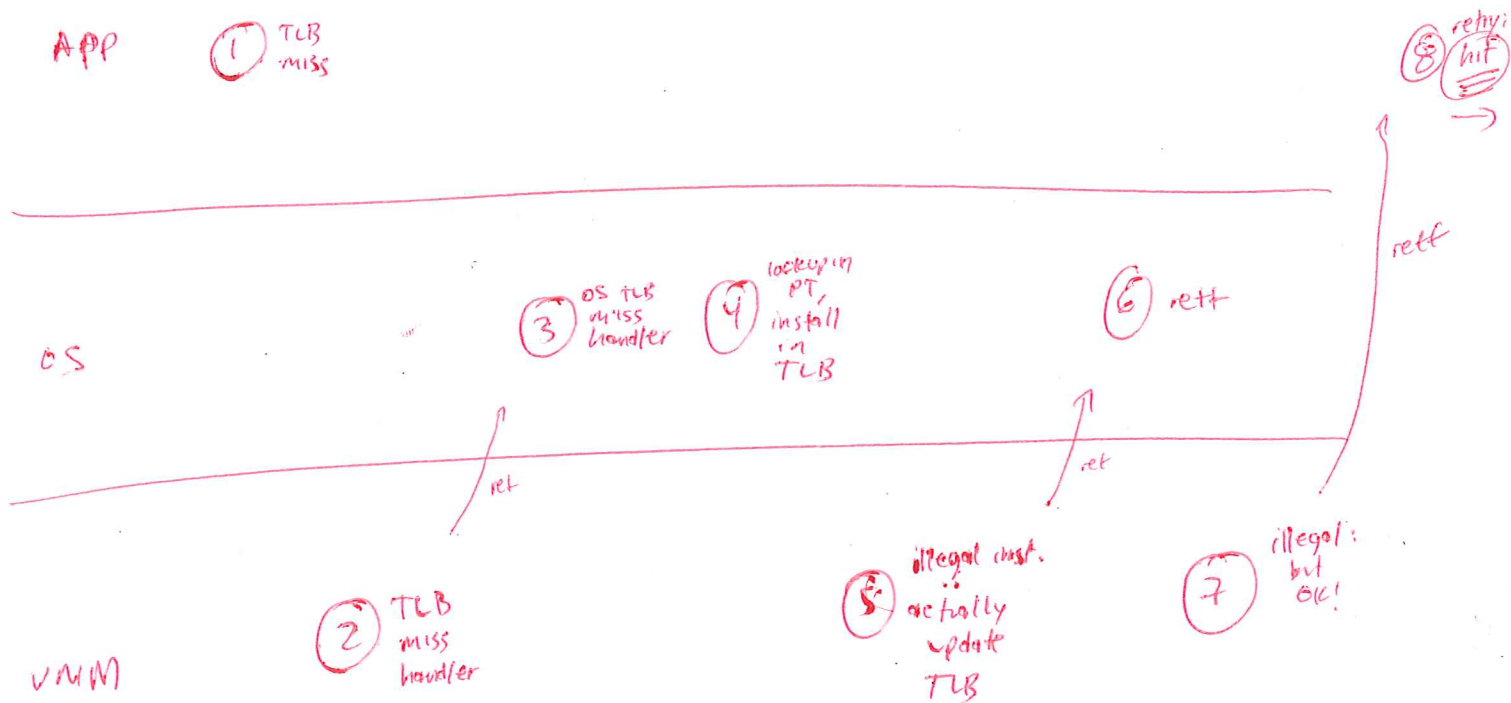 APP
1
TLB
miss
8
retry:
hit
OS
3
OS TLB
miss
handler
4
lookup in
PT,
install
in
TLB
6 rett
rett
ret
ret
VMM
2
TLB
miss
handler
5
illegal inst.
actually
update
TLB
7
illegal:
but
OK!